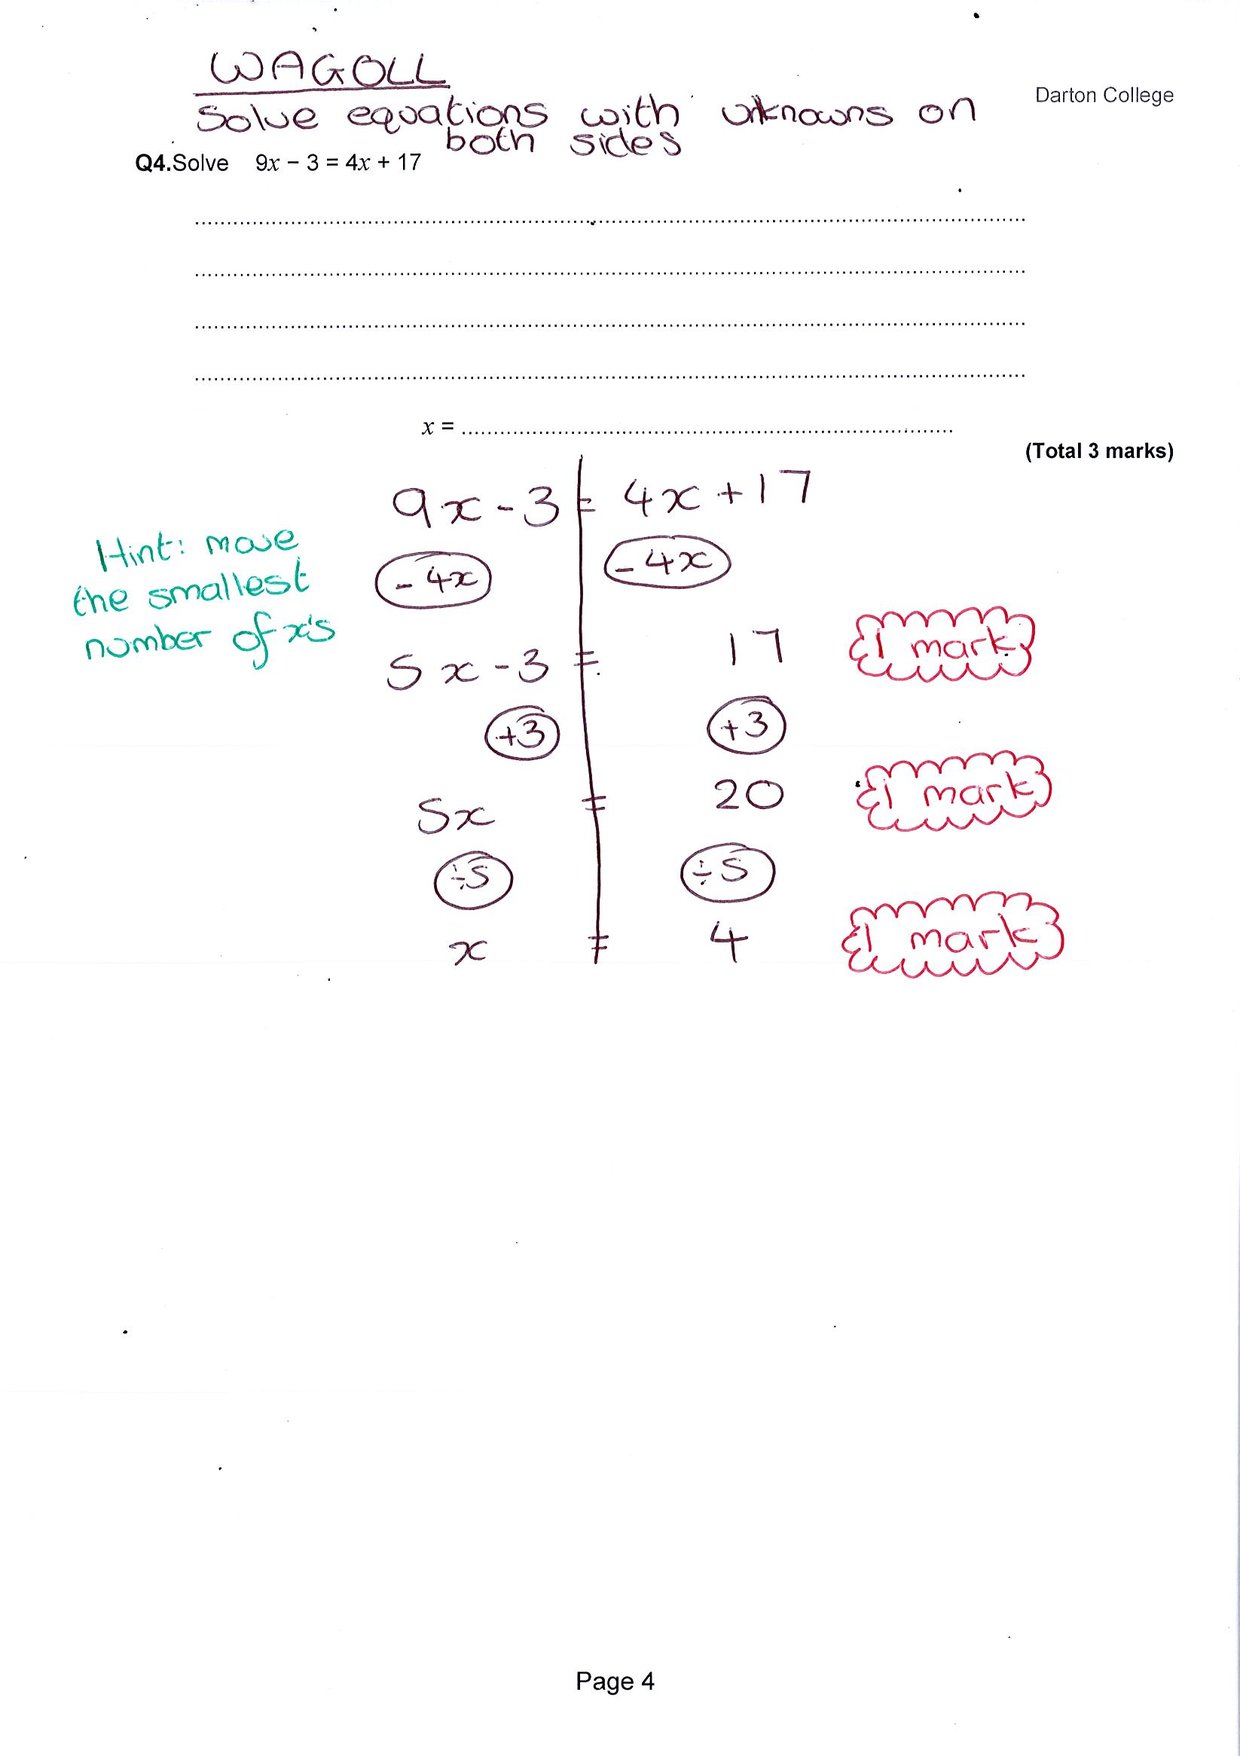 WAGOLL
Darton College
Solve equations with unknowns on
both sides
Q4.Solve 9x − 3 = 4x + 17
x =
(Total 3 marks)
9x - 3 = 4x + 17
Hint: move
the smallest
number of x's
- 4x - 4x
5x - 3 = 17 1 mark
+3 +3
5x = 20 1 mark
÷5 ÷5
x = 4 1 mark
Page 4